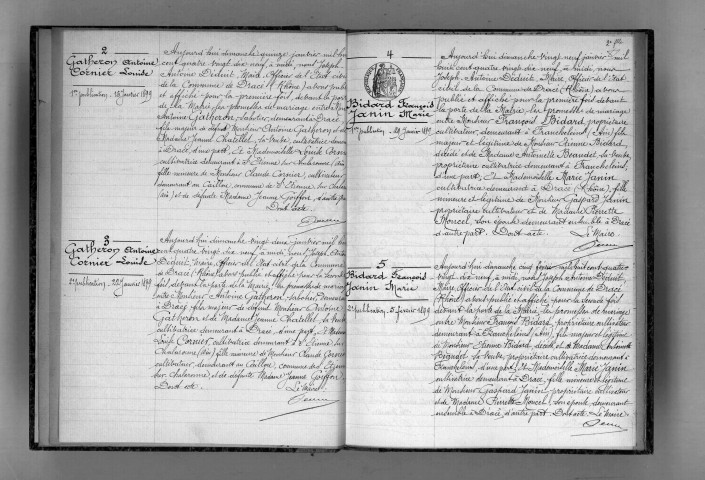 2
Gatheron Antoine
Cornier Louise
1re publication, 15 Janvier 1899
Aujourd'hui dimanche quinze janvier mil huit
cent quatre vingt dix neuf, à midi, nous Joseph
Antoine Déduit, Maire, Officier de l'Etat civil
de la Commune de Dracé (Rhône) avons publié
et affiché pour la première fois devant la porte
de la Mairie, les promesses de mariage entre
Antoine Gatheron, demeurant à Dracé
fils majeur de défunt Monsieur Antoine Gatheron et de
Madame Jeanne Chatellet, sa veuve, cultivatrice demeurant
à Dracé, d'une part, et Mademoiselle Louise Cornier
cultivatrice demeurant à St Etienne sur Chalaronne (Ain)
fille mineure de Monsieur Claude Cornier, cultivateur
demeurant au Caillou, commune de St Etienne sur Chalaronne
(Ain) et de défunte Madame Jeanne Goiffon, d'autre part
Dont acte.
3
Gatheron Antoine
Cornier Louise
2e publication, 22 Janvier 1899
Aujourd'hui dimanche vingt deux janvier mil huit
cent quatre vingt dix neuf, à midi, nous Joseph Antoine
Déduit, Maire, Officier de l'Etat civil de la Commune
de Dracé (Rhône) avons publié et affiché pour la seconde
fois, devant la porte de la Mairie, les promesses de mariage
entre Monsieur Antoine Gatheron, demeurant
à Dracé, fils majeur de défunt Monsieur Antoine
Gatheron et de Madame Jeanne Chatellet, sa veuve
cultivatrice demeurant à Dracé, d'une part, et Mademoiselle
Louise Cornier, cultivatrice demeurant à St Etienne sur
Chalaronne (Ain) fille mineure de Monsieur Claude Cornier
cultivateur, demeurant au Caillou, commune de St Etienne
sur Chalaronne, et de défunte Madame Jeanne Goiffon
Dont acte. Le Maire
4
Bidard François
Janin Marie
1re publication, 29 Janvier 1899
Aujourd'hui dimanche vingt neuf janvier mil
huit cent quatre vingt dix neuf, à midi, nous
Joseph Antoine Déduit, Maire, Officier de l'Etat
civil de la Commune de Dracé (Rhône) avons
publié et affiché pour la première fois devant
la porte de la Mairie, les promesses de mariage
entre Monsieur François Bidard, propriétaire
cultivateur, demeurant à Francheleins (Ain) fils
majeur et légitime de Monsieur Etienne Bidard,
décédé et de Madame Antoinette Beaudet, sa veuve
propriétaire cultivatrice demeurant à Francheleins,
d'une part, Et Mademoiselle Marie Janin
cultivatrice demeurant à Dracé (Rhône), fille
mineure et légitime de Monsieur Gaspard Janin
propriétaire cultivateur et de Madame Pierrette
Moncel, son épouse demeurant ensemble à Dracé
d'autre part. Dont acte. Le Maire
5
Bidard François
Janin Marie
2e publication, 5 Février 1899
Aujourd'hui dimanche cinq février mil huit cent quatre
vingt dix neuf, à midi, nous Joseph Antoine Déduit
Maire, Officier de l'Etat civil de la Commune de Dracé
(Rhône) avons publié et affiché, pour la seconde fois
devant la porte de la Mairie, les promesses de mariage
entre Monsieur François Bidard, propriétaire cultivateur
demeurant à Francheleins (Ain) fils majeur et légitime
de Monsieur Etienne Bidard, décédé, et de Madame Antoinette
Beaudet, sa veuve, propriétaire cultivatrice demeurant à
Francheleins, d'une part, Et Mademoiselle Marie Janin
cultivatrice demeurant à Dracé, fille mineure et légitime
de Monsieur Gaspard Janin, propriétaire cultivateur
et de Madame Pierrette Moncel, son épouse, demeurant
ensemble à Dracé, d'autre part. Dont acte. Le Maire